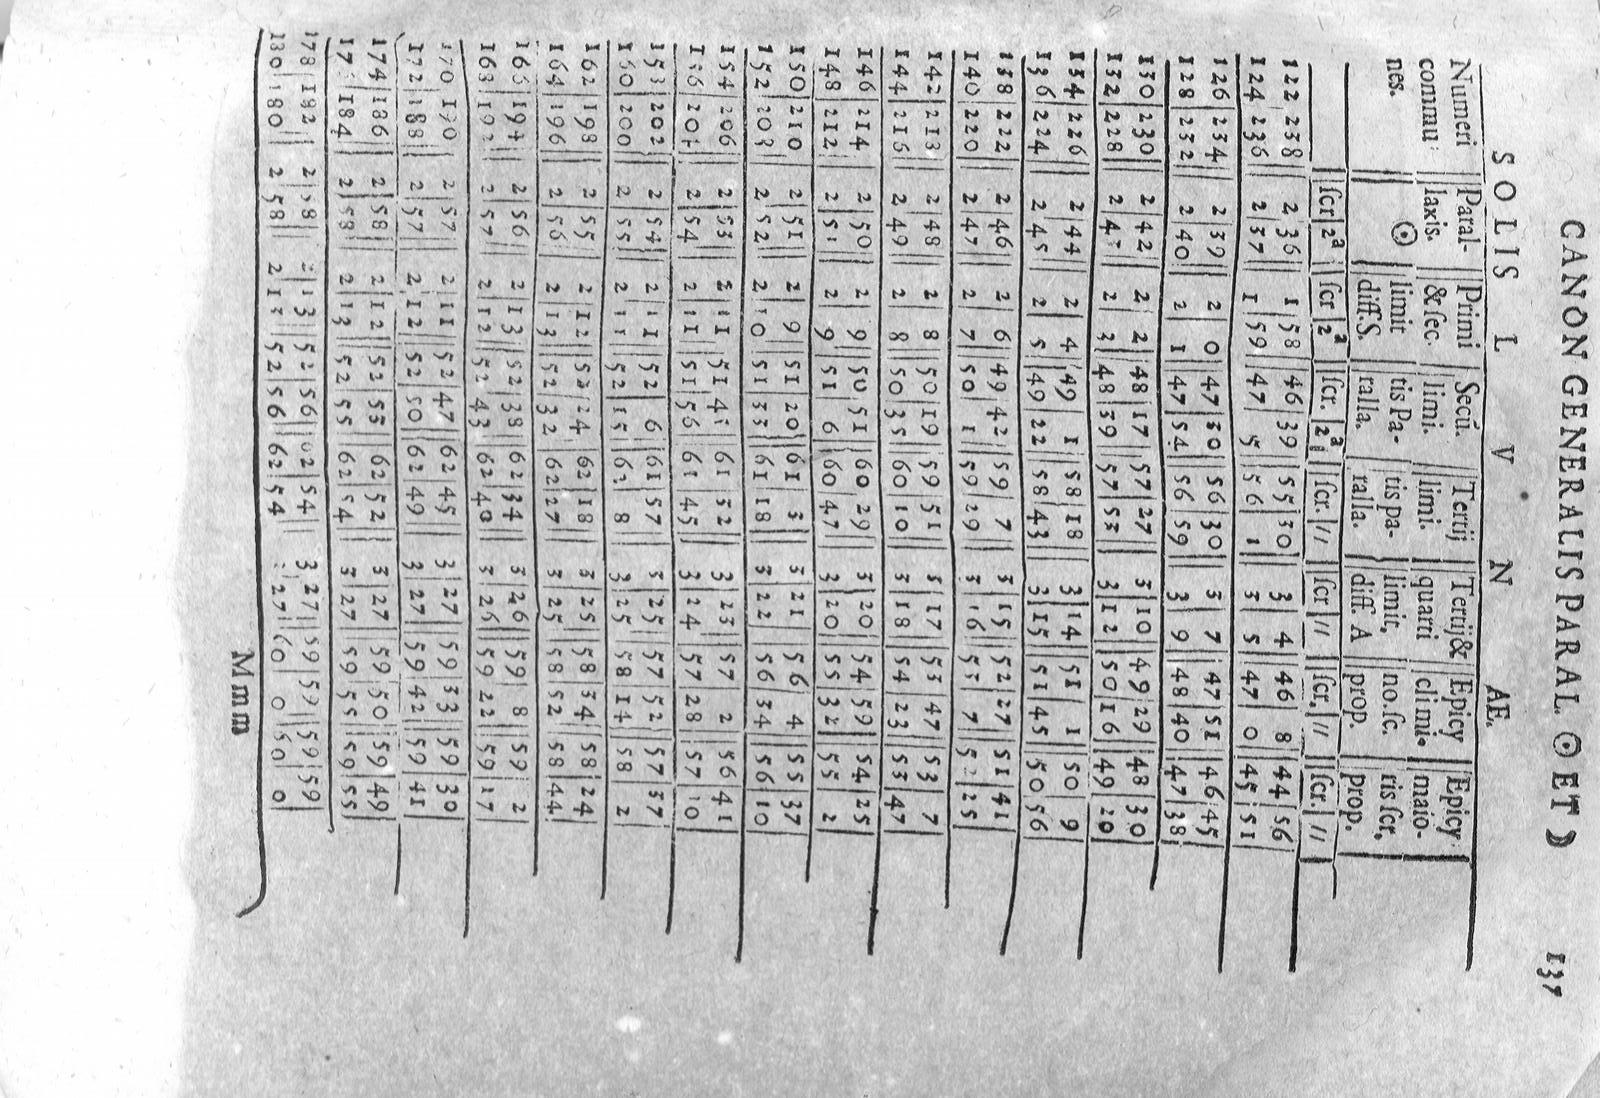 CANON GENERALIS PARAL. ☉ ET ☽ 137
SOLIS LVNAE.
Numeri | Paral- | Primi | Secū. | Tertij | Tertij& | Epicy | Epicy
commu | laxis. | &ſec. | limi. | limi. | quarti | cli mi- | maio-
nes. | ☉ | limit | tis Pa- | tis pa- | limit, | no.ſc. | ris ſcr,
diff.S. | ralla. | ralla. | diff. A | prop. | prop.
ſcr 2ᵃ | ſcr 2ᵃ | ſcr. 2ᵃ | ſcr. // | ſcr // | ſcr. // | ſcr. //
122 238 2 36 1 58 46 39 55 30 3 4 46 8 44 56
124 236 2 37 1 59 47 5 56 1 3 5 47 0 45 51
126 234 2 39 2 0 47 30 56 30 3 7 47 51 46 45
128 232 2 40 2 1 47 54 56 59 3 9 48 40 47 38
130 230 2 42 2 2 48 17 57 27 3 10 49 29 48 30
132 228 2 43 2 3 48 39 57 53 3 12 50 16 49 20
134 226 2 44 2 4 49 1 58 18 3 14 51 1 50 9
136 224 2 45 2 5 49 22 58 43 3 15 51 45 50 56
138 222 2 46 2 6 49 42 59 7 3 15 52 27 51 41
140 220 2 47 2 7 50 1 59 29 3 16 53 7 52 25
142 218 2 48 2 8 50 19 59 51 3 17 53 47 53 7
144 216 2 49 2 8 50 35 60 10 3 18 54 23 53 47
146 214 2 50 2 9 50 51 60 29 3 20 54 59 54 25
148 212 2 51 2 9 51 6 60 47 3 20 55 32 55 2
150 210 2 51 2 9 51 20 61 3 3 21 56 4 55 37
152 208 2 52 2 10 51 33 61 18 3 22 56 34 56 10
154 206 2 53 2 11 51 45 61 32 3 23 57 2 56 41
156 204 2 54 2 11 51 56 61 45 3 24 57 28 57 10
158 202 2 54 2 11 52 6 61 57 3 25 57 52 57 37
160 200 2 55 2 11 52 15 62 8 3 25 58 14 58 2
162 198 2 55 2 12 52 24 62 18 3 25 58 34 58 24
164 196 2 56 2 13 52 32 62 27 3 25 58 52 58 44
166 194 2 56 2 13 52 38 62 34 3 26 59 8 59 2
168 192 2 57 2 12 52 43 62 40 3 26 59 22 59 17
170 190 2 57 2 11 52 47 62 45 3 27 59 33 59 30
172 188 2 57 2 12 52 50 62 49 3 27 59 42 59 41
174 186 2 58 2 12 52 53 62 52 3 27 59 50 59 49
184 2 58 2 13 52 55 62 54 3 27 59 55 59 55
178 182 2 58 13 52 56 62 54 3 27 59 59 59 59
180 180 2 58 2 13 52 56 62 54 27 60 0 60 0
Mmm